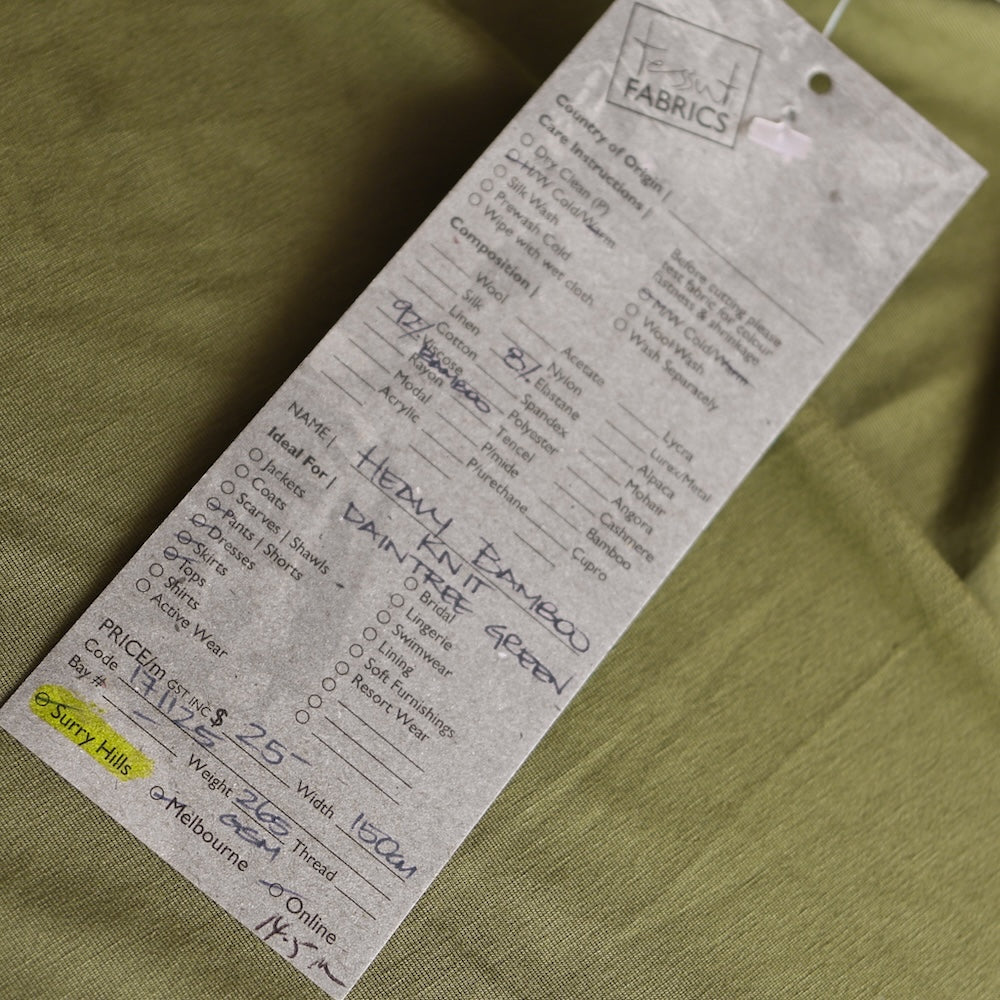 Tessuti
FABRICS
Country of Origin |
Care Instructions |
Dry Clean (P)
H/W Cold/Warm
Silk Wash
Prewash Cold
Wipe with wet cloth
Before cutting please
test fabric for colour
fastness & shrinkage
M/W Cold/Warm
Wool Wash
Wash Separately
Composition |
Wool
Silk
Linen
Cotton
92% Viscose
BAMBOO
Rayon
Modal
Acrylic
Acetate
Nylon
8% Elastane
Spandex
Polyester
Tencel
P/mide
P/urethane
Lycra
Lurex/Metal
Alpaca
Mohair
Angora
Cashmere
Bamboo
Cupro
NAME | HEAVY BAMBOO
KNIT
DAINTREE GREEN
Ideal For |
Jackets
Coats
Scarves | Shawls
Pants | Shorts
Dresses
Skirts
Tops
Shirts
Active Wear
Bridal
Lingerie
Swimwear
Lining
Soft Furnishings
Resort Wear
PRICE/m GST INC $ 25-
Code 171125
Width 150cm
Bay #
Weight 265
GSM
Thread
Surry Hills
Melbourne
Online
14.5 m